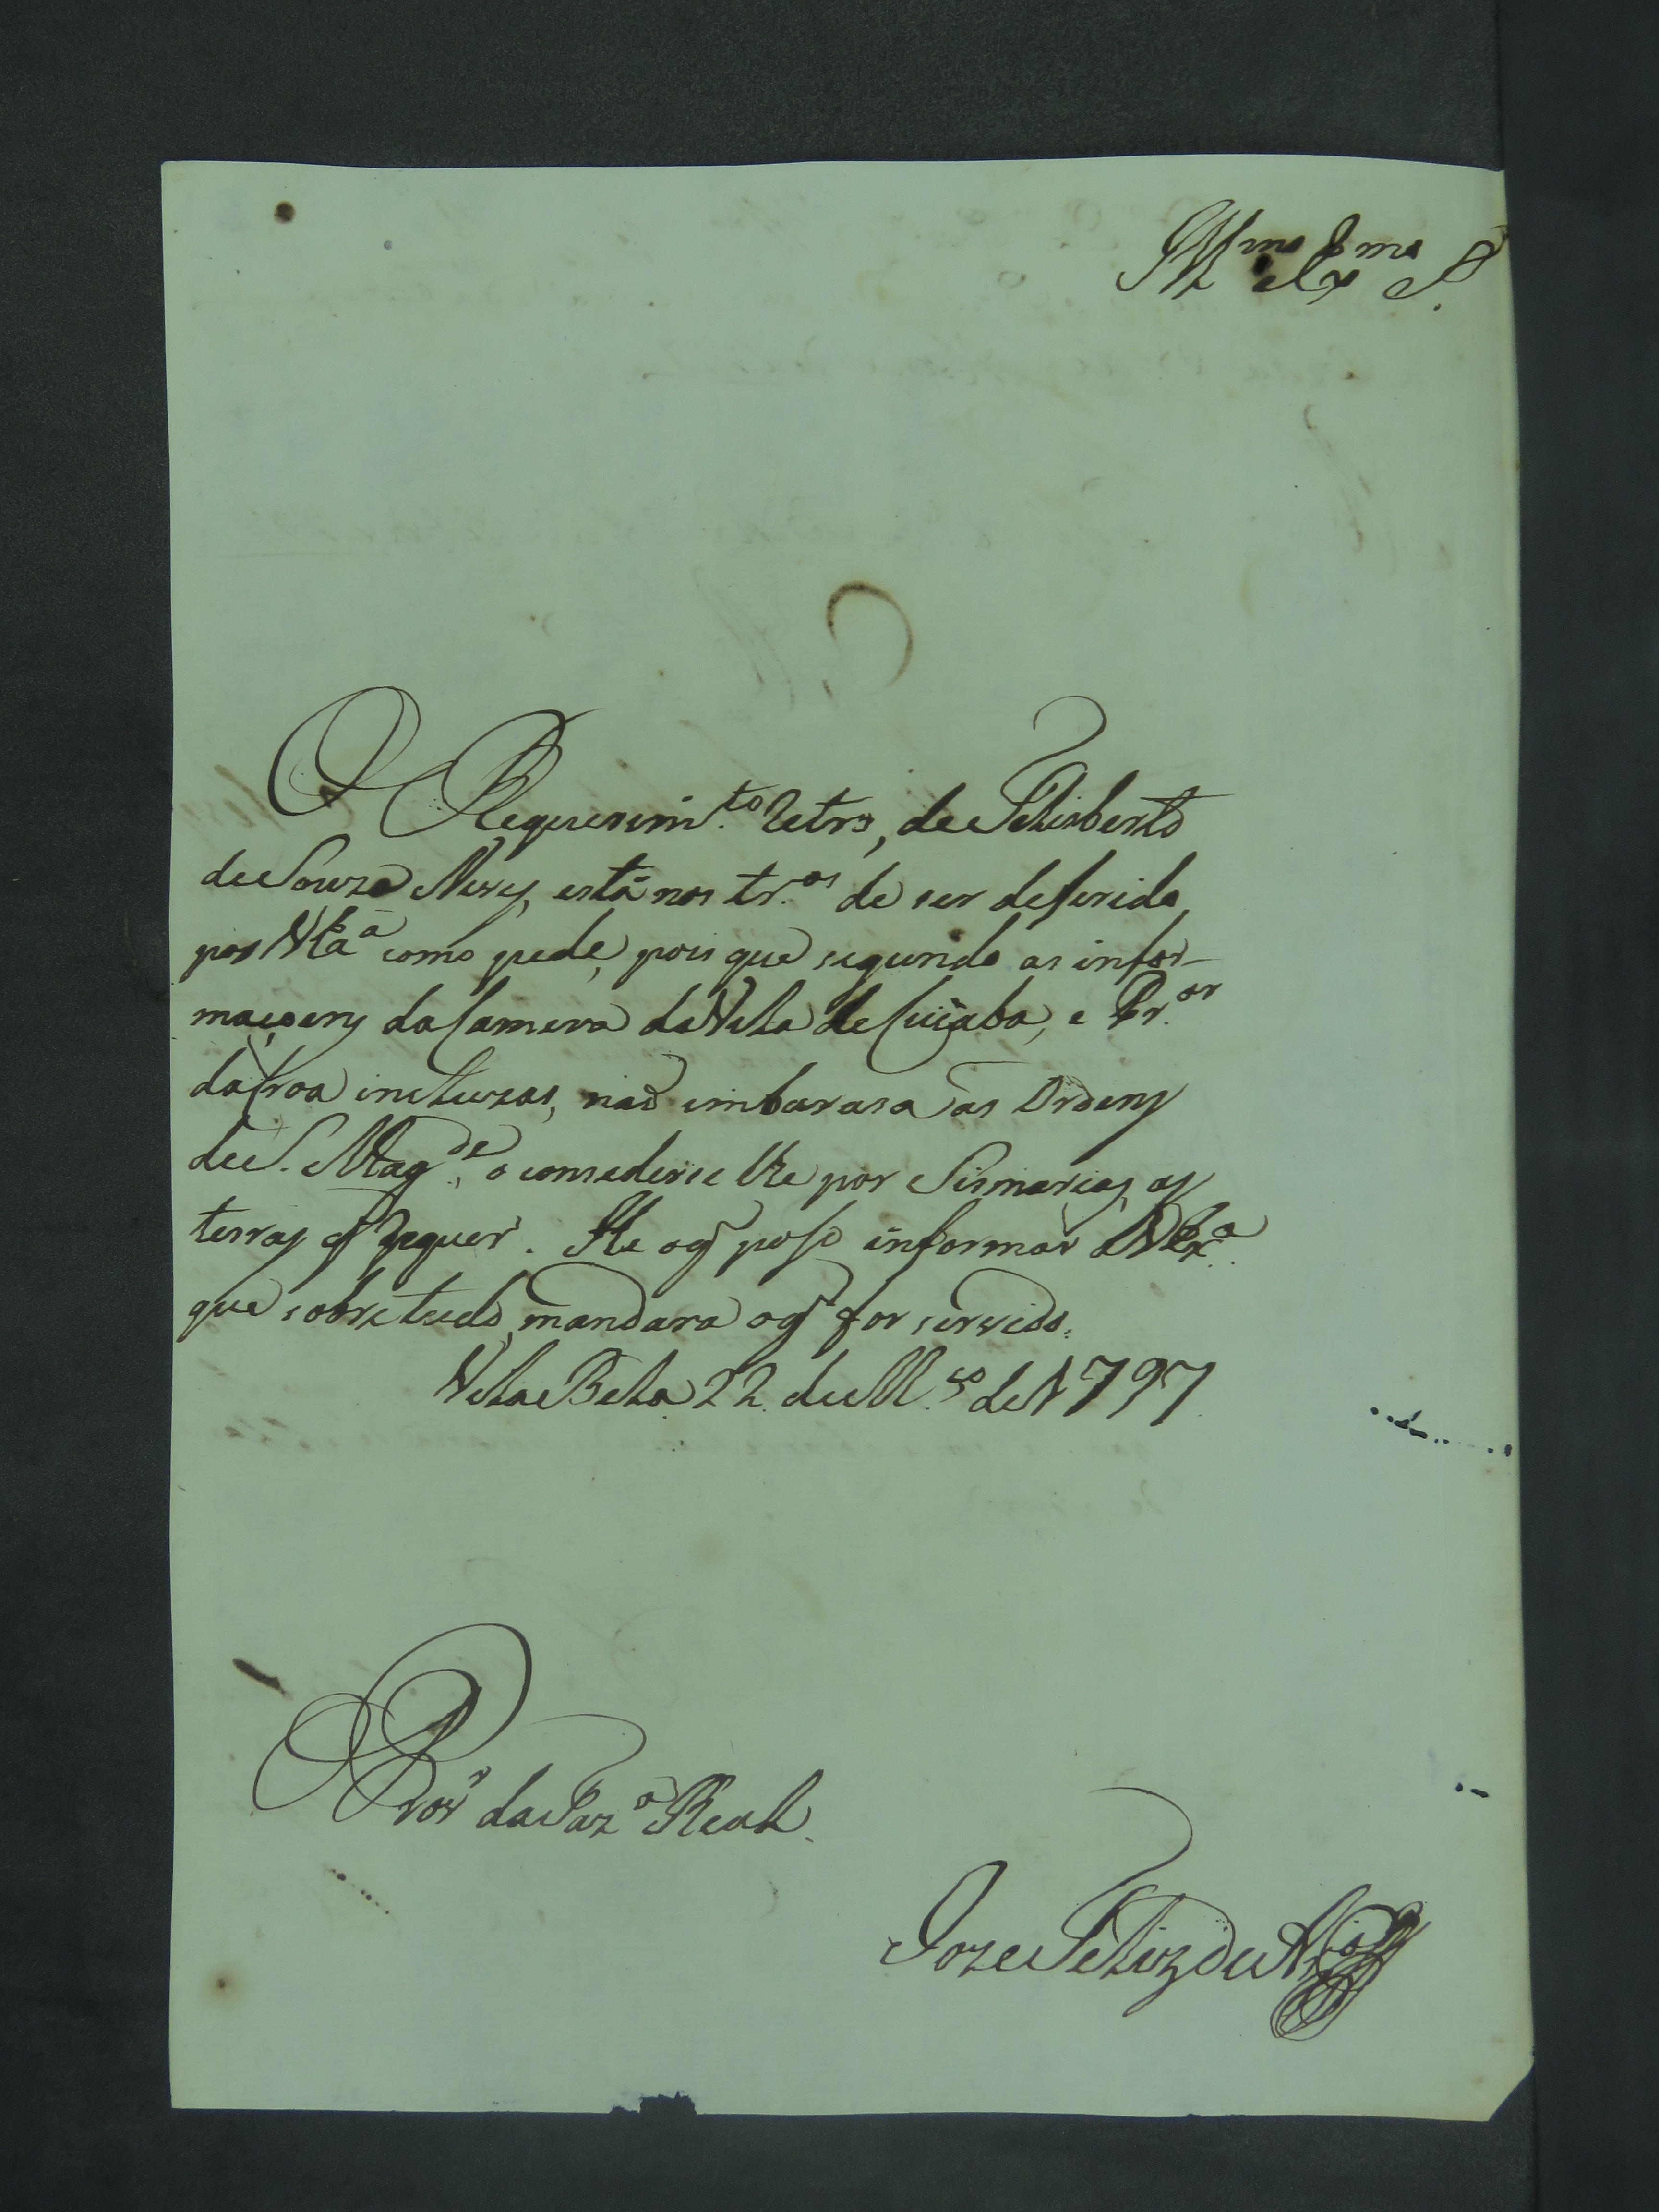 Illmo e Exmo Sr.
O Requerimto retro, de Felisberto
de Souza Nery, está nos tr.os de ser deferido
por V Exa como pede, pois que segundo as infor-
maçoens da Camera da Vila de Cuiaba, e Pr.or
da Croa incluzas, não embarasa as Ordens
de S. Magde, o consederse lhe por Sismarias as
terras q̃ requer. He o q̃ poso informar a V Exa.
que sobre tudo mandara o q̃ for servido.
Vila Bela 22 de M.ço de 1797
Pror da Faza Real.
Joze Feliz de